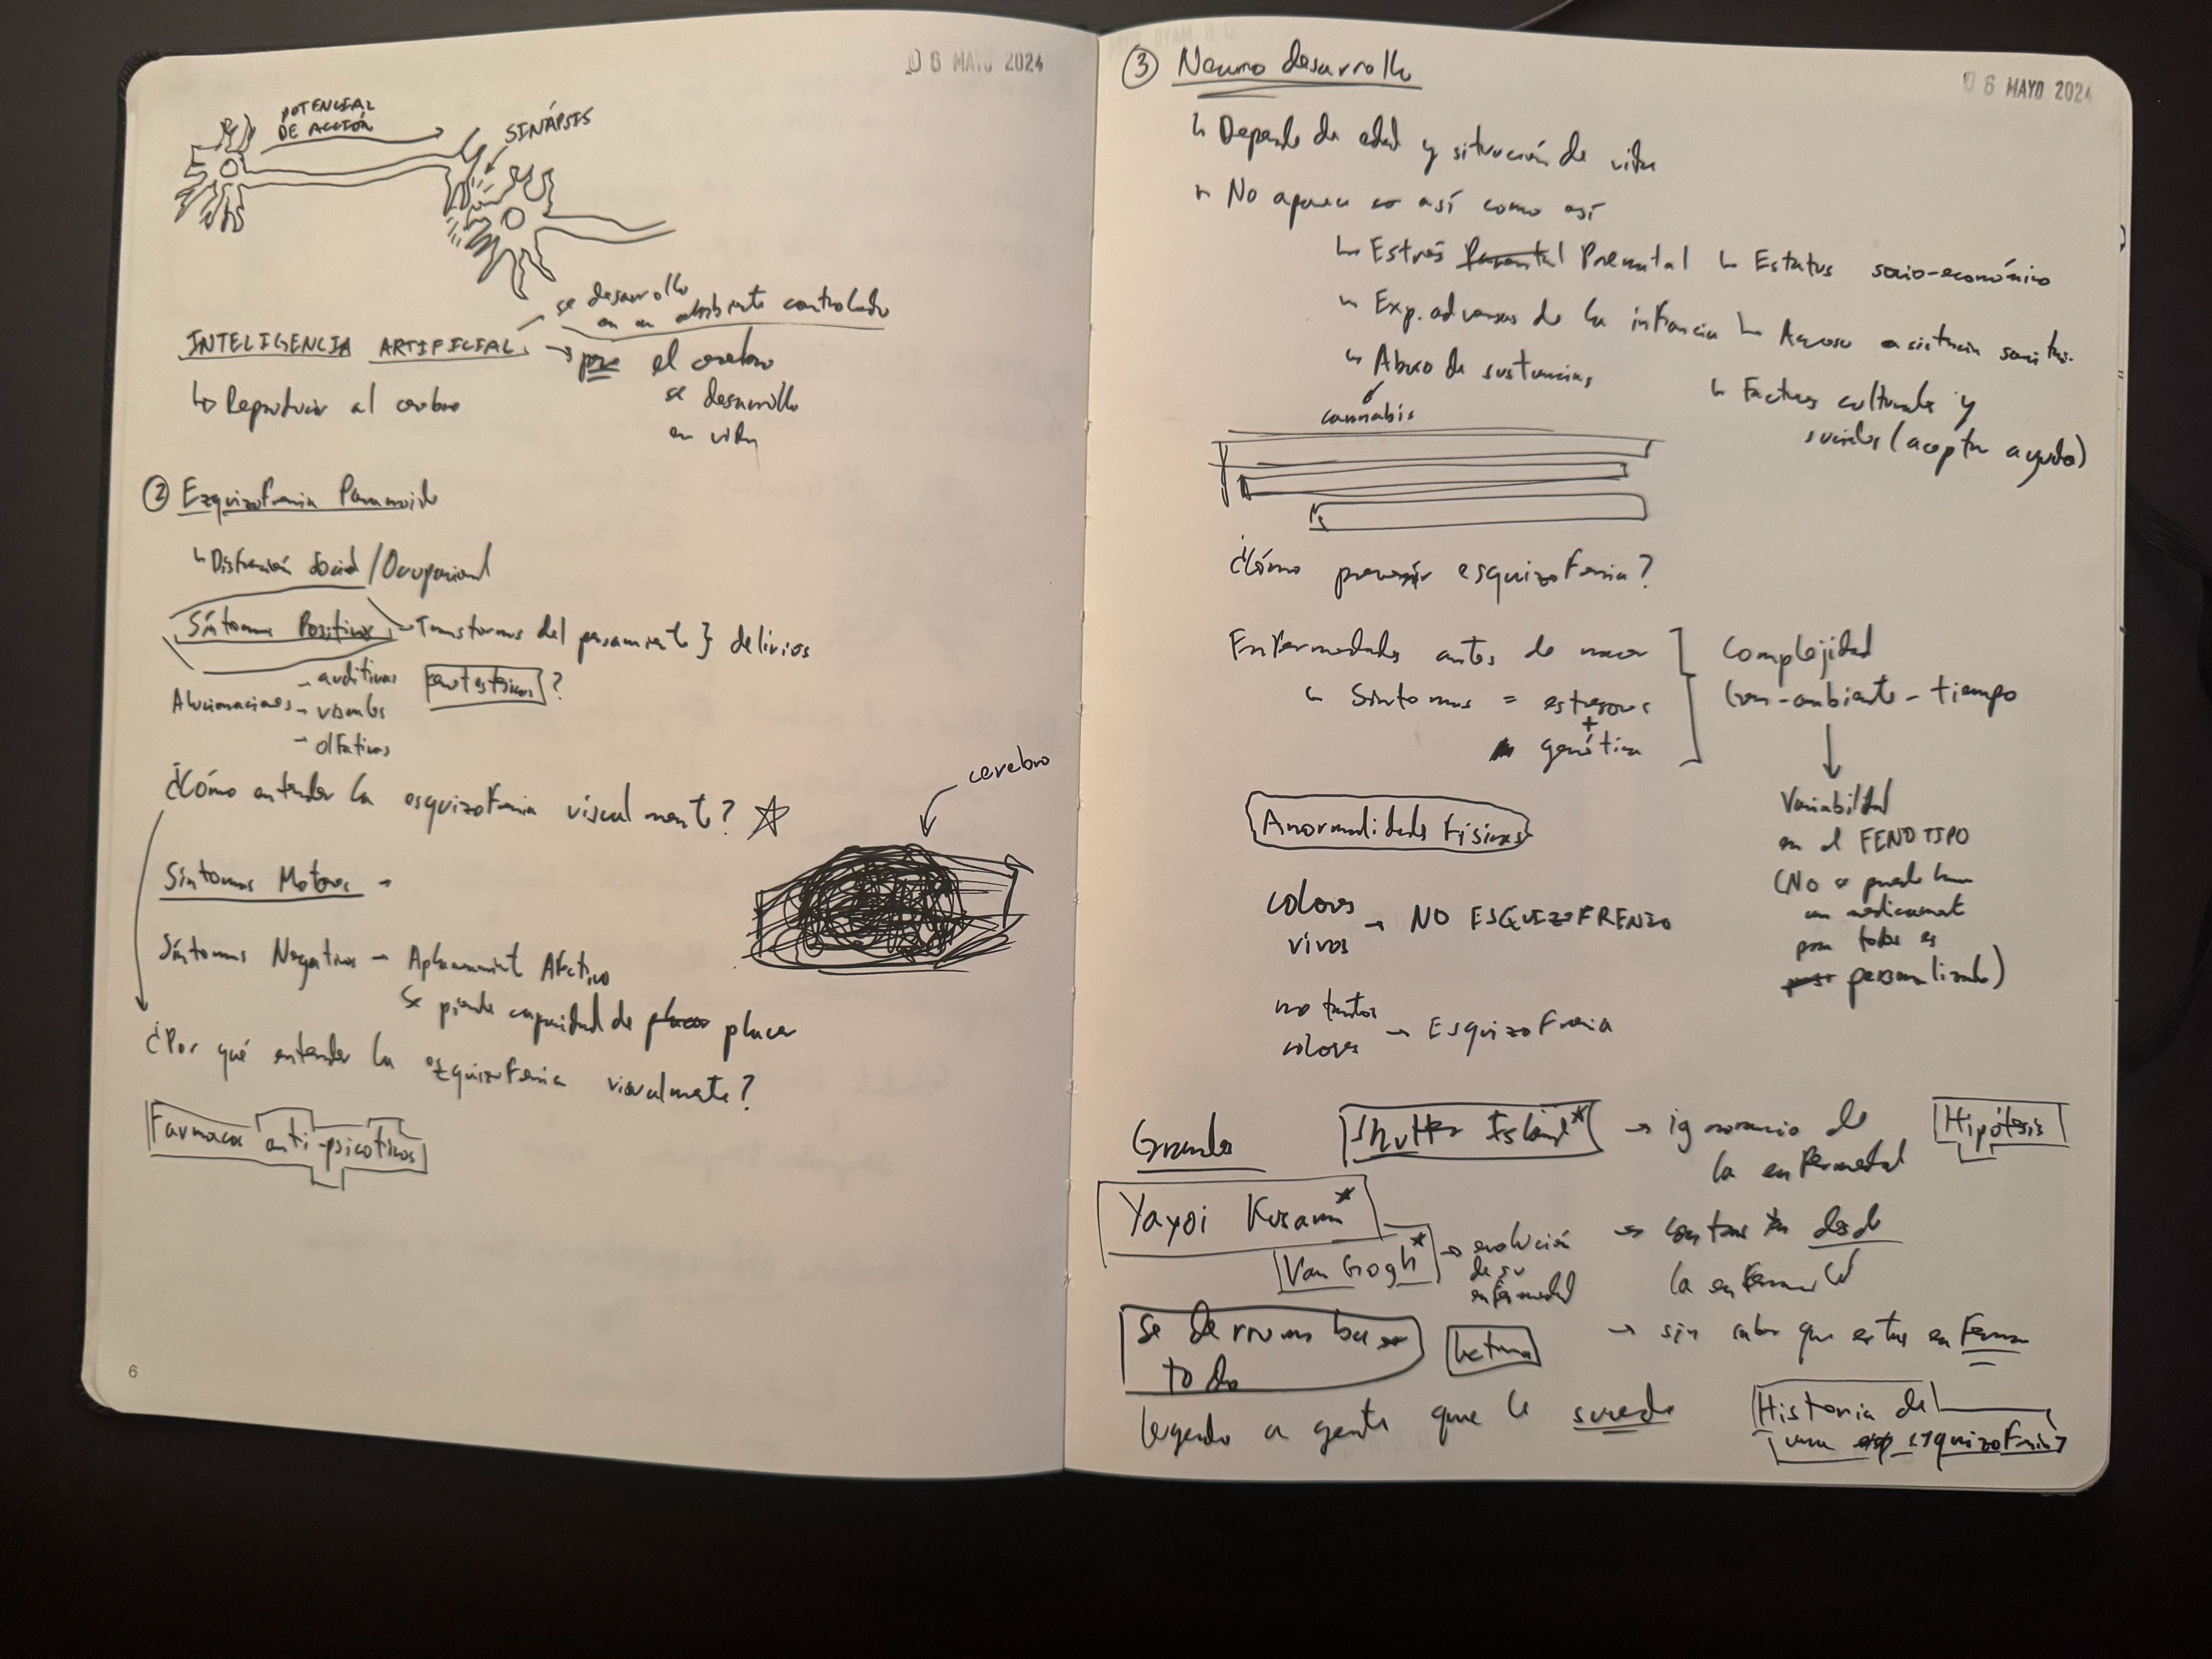 06 MAYO 2024
POTENCIAL
DE ACCIÓN
SINÁPSIS
INTELIGENCIA ARTIFICIAL
se desarrollo
en un ambiente controlado
el cerebro
se desarrollo
en vida
↳ Reproducir al cerebro
② Ezquizofrenia Paranoide
↳ Disfunción Social/Ocupacional
Síntomas Positivos - Transtornos del pensamiento } delirios
Alucinaciones
- auditivas
- visuales
- olfativas
?
¿Cómo entender la esquizofrenia visualmente? ☆
cerebro
Síntomas Motores -
Síntomas Negativos - Aplanamient Afectivo
Se pierde capacidad de placer placer
¿Por qué entender la ezquizofrenia visualmente?
Farmacos anti-psicoticos
6
06 MAYO 2024
③ Neurodesarrollo
↳ Depende de edad y situación de vida
↳ No aparece así como así
↳ Estrés Prenatal
↳ Estatus socio-económico
↳ Exp. adversas de la infancia
↳ Acceso asistencia
↳ Abuso de sustancias
cannabis
↳ Factores culturales y
sociales (aceptar ayuda)
¿Cómo prevenir esquizofrenia?
Enfermedades antes de nacer
↳ Síntomas = estresores
+
genética
Complejidad
Gen-ambiente-tiempo
Variabilidad
en el FENOTIPO
(No se puede
un medicament
para todos es
personalizado)
Anormalidades Físicas
colores
vivos → NO ESQUIZOFRENIA
no tantos
colores → Esquizofrenia
Shutter Island* → ignorancia de
la enfermedad
Hipótesis
Yayoi Kusama*
Van Gogh* → evolución
de su
enfermedad
→ desde
la enfermedad
se derrumba
todo
→ sin saber que estas enfermo
leyendo a gente que le sucede
Historia de
una esquizofrenia